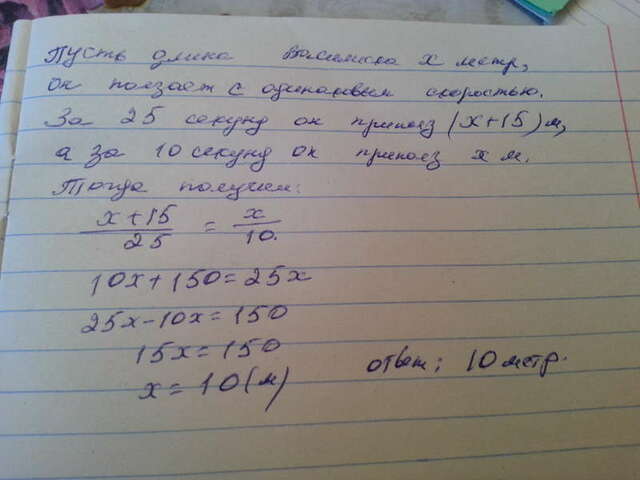 Пусть длина Василиска x метр,
он ползает с одинаковым скоростью.
За 25 секунд он прополз (x+15) м,
а за 10 секунд он прополз x м.
Тогда получим:
x+15/25 = x/10.
10x+150=25x
25x-10x=150
15x=150
x=10(м)
ответ: 10 метр.